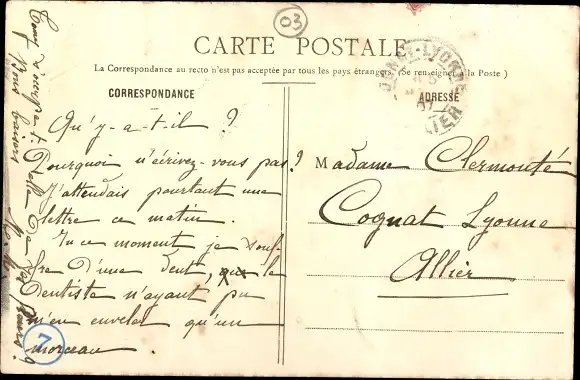 03
CARTE POSTALE
La Correspondance au recto n'est pas acceptée par tous les pays étrangers (Se renseigner à la Poste)
CORRESPONDANCE
ADRESSE
Qu'y-a-t-il ?
Pourquoi n'écrivez-vous pas ?
J'attendais pourtant une
lettre ce matin.
En ce moment je souf-
fre d'une dent, le
dentiste n'ayant pu
m'en enveler qu'un
morceau.
Bons baisers
7
Madame Clermonté
Cognat Lyonne
Allier